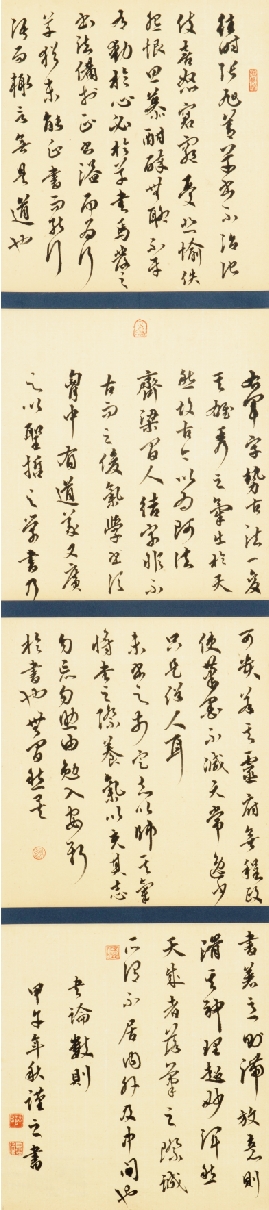 往时张旭善草书不治他
伎喜怒窘穷忧悲愉佚
怨恨思慕酣醉无聊不平
有动于心必于草书焉发之
书法备于正书溢而为行
草未能正书而能行
草犹未
语而辄言无是道也
右军字势古法一变
其雄秀之气出于天
然故古今以为师法
齐梁间人结字非不
古而乏俊气学书须
胸中有道义又广
之以圣哲之学书乃
可贵若其灵府无程政
使笔墨不减元常逸少
只是俗人耳
未书之前定志以帅其气
将书之际养气以充其志
勿忘勿助由勉入安斯
于书也无间然矣
书著意则滞放意则
滑其神理超妙浑然
天成者落笔之际诚
所谓不居内外及中间也
书论数则
甲午年秋谨之书